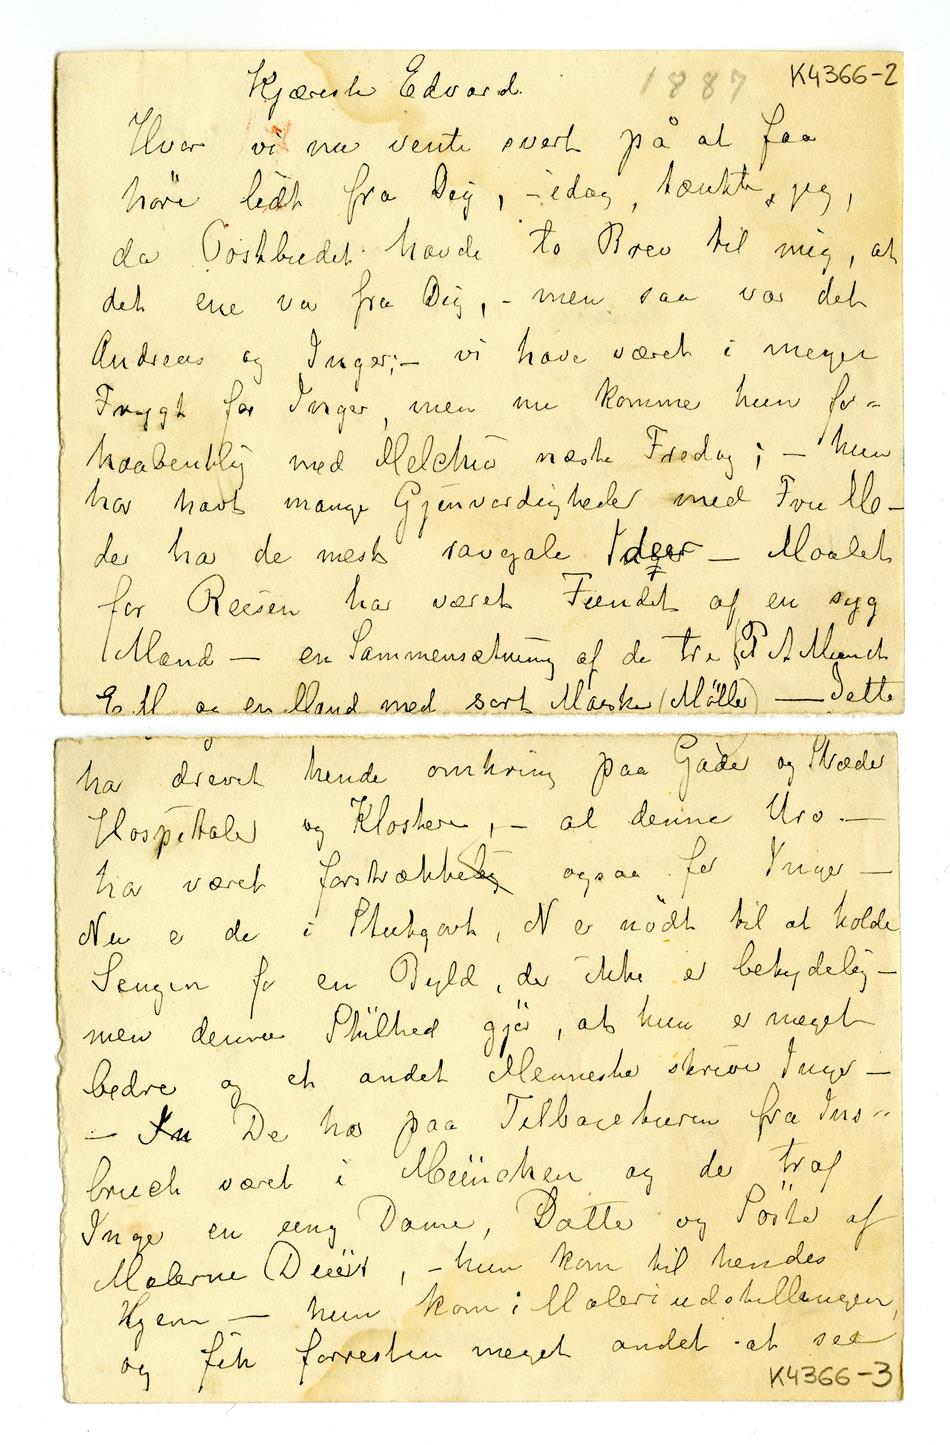 Kjæreste Edvard. 1887 K4366-2
Hvor vi nu vente svært på at faa
høre lidt fra Dig, - idag, tænkte jeg,
da Postbudet havde to Brev til mig, at
det ene var fra Dig, - men saa var det
Andreas og Inger; - vi have været i megen
Frygt for Inger, men nu kommer hun for=
haabentlig med Melchior næste Fredag; - hun
har havt mange Gjenvordigheder med Fru Mo-
der har de mest ravgale Ideer - Maalet
for Reisen har været Fundet af en syg
Mand - en Sammensætning af de tre (P A Munch
E M og en Mand med sort Maske (Møller) - Dette
har drevet hende omkring paa Gader og Stræder
Hospitaler og Klostere, - al denne Uro -
har været forstrækkelig ogsaa for Inger -
Nu er de i Stutgart, N er nødt til at holde
Sengen for en Byld, der ikke er betydelig -
men denne Stilhed gjør, at hun er meget
bedre og et andet Menneske skriver Inger -
- De har paa Tilbageturen fra Ins=
bruch været i München og der traf
Inger en ung Dame, Datter og Søster af
Malerne Dürr, - hun kom til hendes
Hjem - hun kom i Maleriudstillingen,
og fik forresten meget andet at see
K4366-3